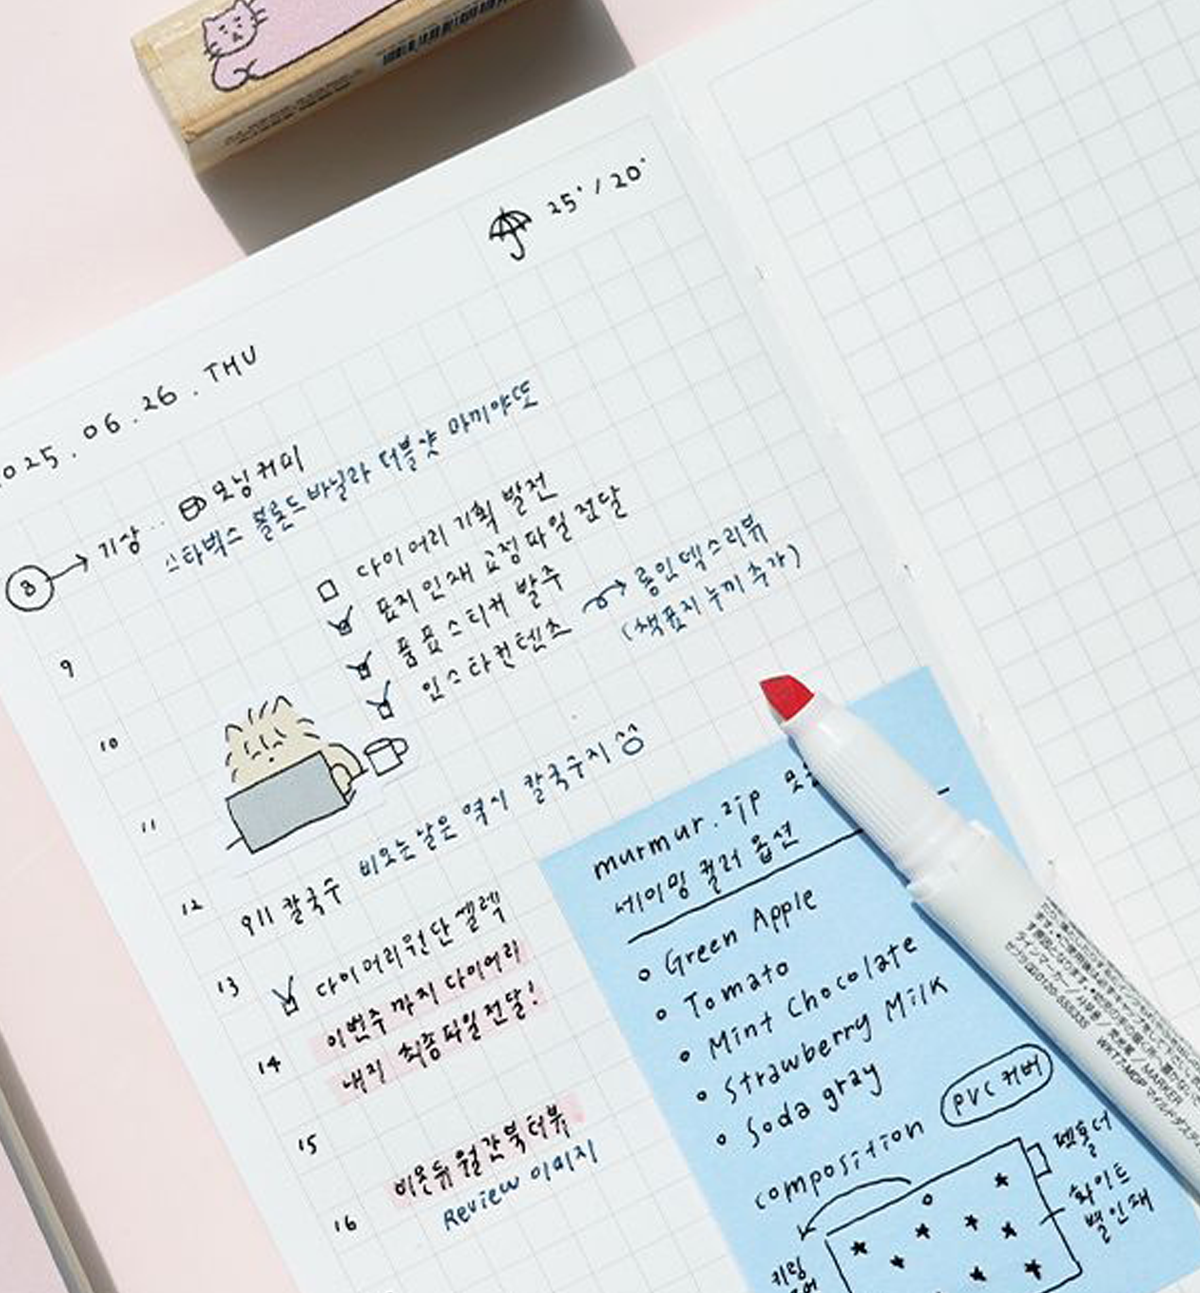 025.06.26.THU
25°/20°
8 → 기상.. 모닝커피
스타벅스 블론드바닐라 더블샷 마끼야또
다이어리 기획 발전
표지 인쇄 교정파일 전달
품품스티커 발주
인스타컨텐츠 → 롱인덱스리뷰
(책표지 누끼 추가)
9
10
11
비오는날은 역시 칼국수지
12
911 칼국수
13
다이어리원단 셀렉
이번주 까지 다이어리
14
내지 최종파일 전달!
15
이온뮤 월간북터뷰
16
Review 이미지
murmur.zip
네이밍 컬러 옵션
Green Apple
Tomato
Mint Chocolate
Strawberry Milk
Soda gray
composition
PVC 커버
펜홀더
화이트
별인쇄
키링